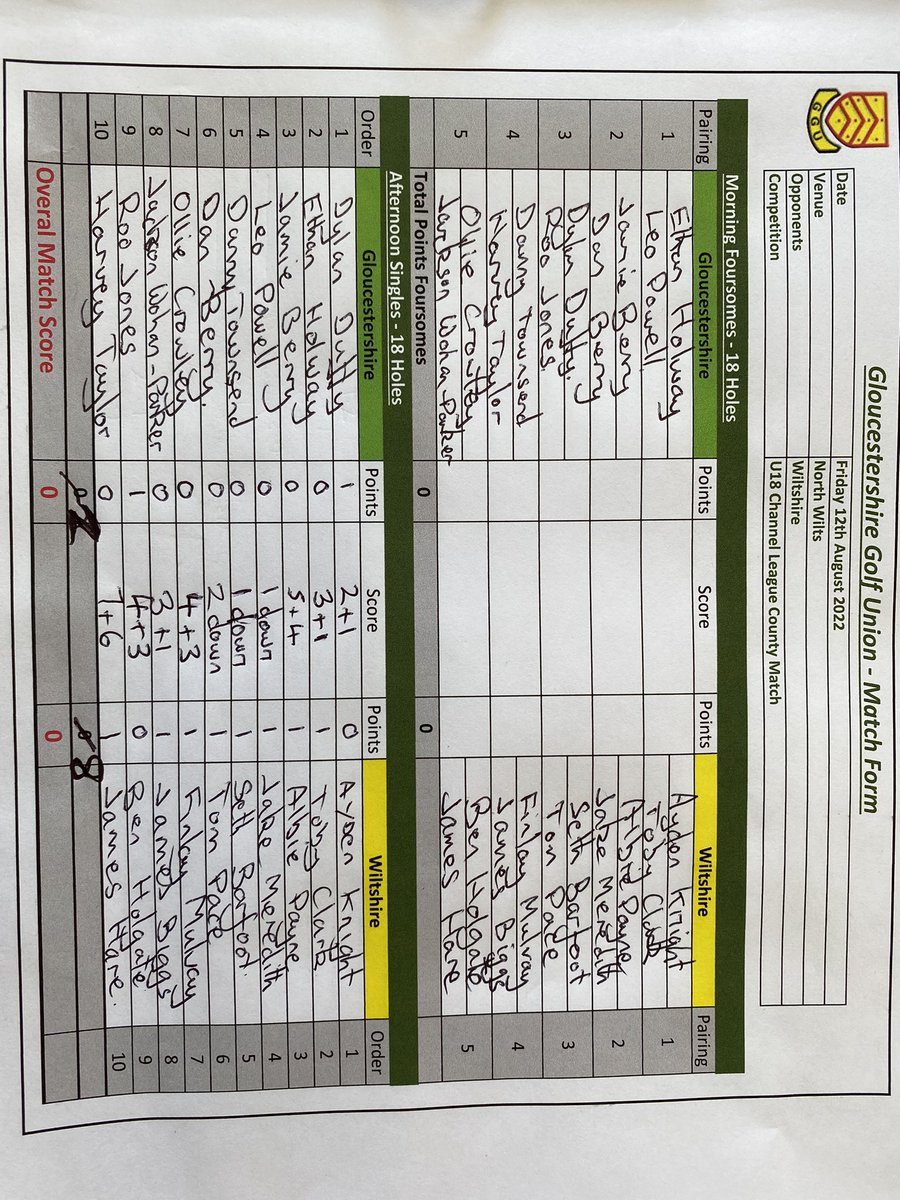 Gloucestershire Golf Union - Match Form
GGU
Date Friday 12th August 2022
Venue North Wilts
Opponents Wiltshire
Competition U18 Channel League County Match
Morning Foursomes - 18 Holes
Pairing Gloucestershire Points Score Points Wiltshire Pairing
1 Ethan Holway Ayden Knight 1
Leo Powell Toby Clark
2 Jamie Berry Albie Payne 2
Dan Berry Jake Meredith
3 Dylan Duffy Seth Bartoot 3
Roo Jones Tom Page
4 Danny Townsend Finlay Mulvay 4
Harvey Taylor James Biggs
5 Ollie Crowley Ben Holgate 5
Jackson Wohan-Parker James Hare
Total Points Foursomes 0 0
Afternoon Singles - 18 Holes
Order Gloucestershire Points Score Points Wiltshire Order
1 Dylan Duffy 1 2+1 0 Ayden Knight 1
2 Ethan Holway 0 3+1 1 Toby Clark 2
3 Jamie Berry 0 5+4 1 Albie Payne 3
4 Leo Powell 0 1 down 1 Jake Meredith 4
5 Danny Townsend 0 1 down 1 Seth Bartoot 5
6 Dan Berry. 0 2 down 1 Tom Page 6
7 Ollie Crowley 0 4+3 1 Finlay Mulvay 7
8 Jackson Wohan-Parker 0 3+1 1 James Biggs 8
9 Roo Jones 1 4+3 0 Ben Holgate 9
10 Harvey Taylor 0 7+6 1 James Hare. 10
2 8
Overal Match Score 0 0